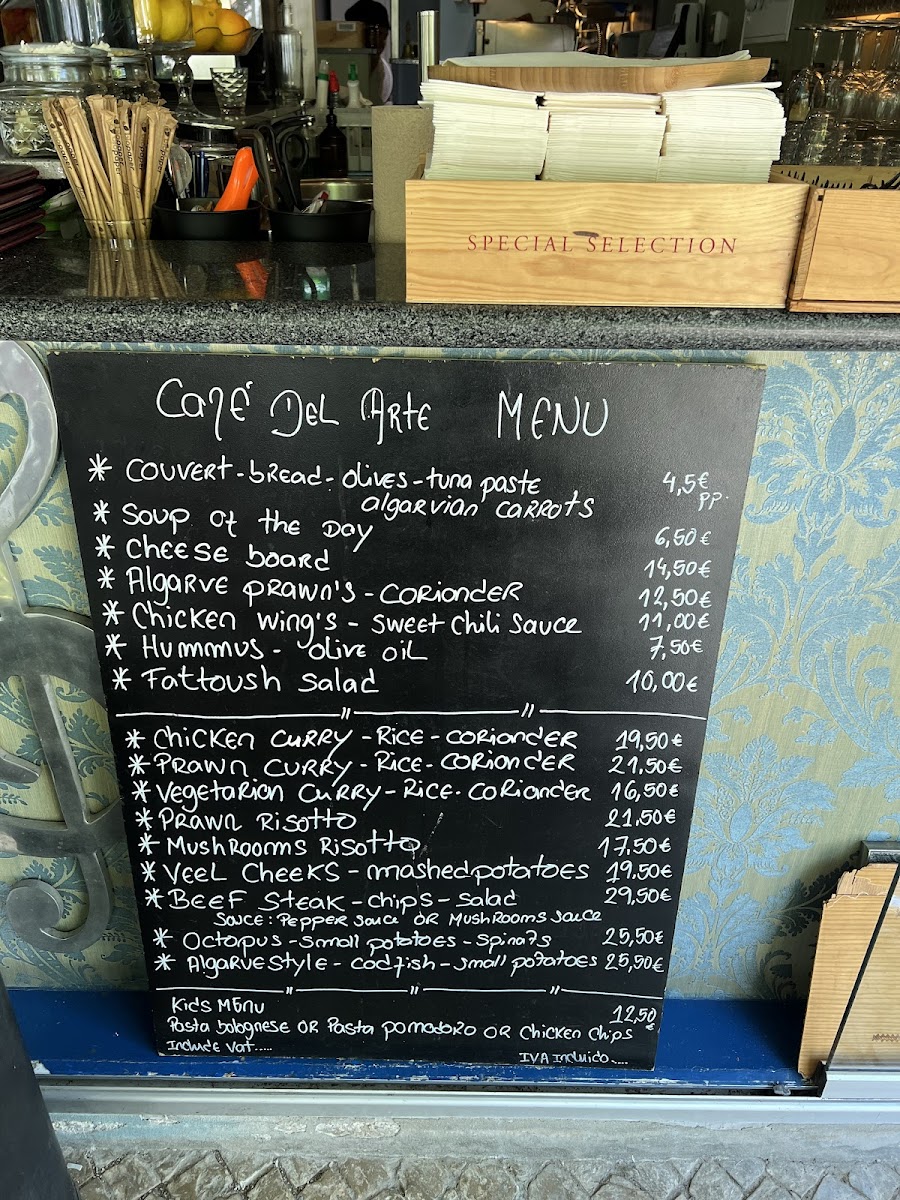 SPECIAL SELECTION
Café Del Arte MENU
* COUVERT - bREAD - OLIVES - tuna paste 4,5€
algarvian CARROTS PP.
* Soup of the Day 6,50€
* Cheese board 14,50€
* Algarve prawn's - CORIANDER 12,50€
* Chicken wing's - sweet chili sauce 11,00€
* Hummmus - olive oil 7,50€
* Fattoush salad 10,00€
* Chicken CURRY - RICE - CORIANDER 19,50€
* Prawn CURRY - RICE - CORIANDER 21,50€
* Vegetarion CURRY - RICE - CORIANDER 16,50€
* Prawn Risotto 21,50€
* MushRooms Risotto 17,50€
* Veel Cheeks - mashed potatoes 19,50€
* Beef Steak - chips - salad 29,50€
Sauce: Pepper Sauce OR MushRooms sauce
* Octopus - small potatoes - spinafs 25,50€
* Algarve style - codfish - small potatoes 25,50€
Kids MEnu 12,50
Pasta bolognese OR Pasta pomodoro OR Chicken Chips €
Include Vat..... IVA Incluido.....